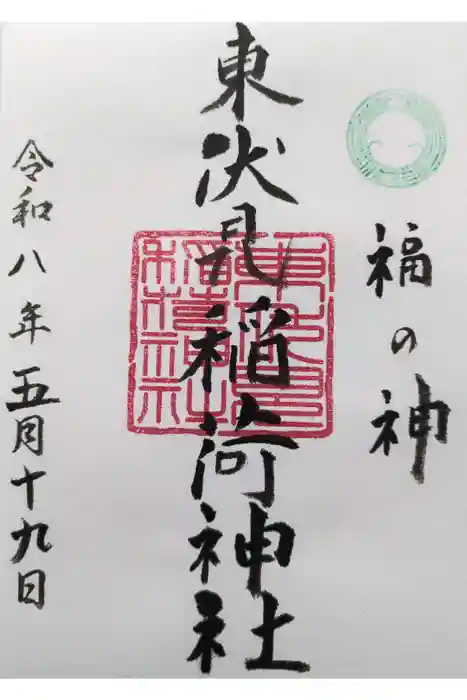 福の神
東伏見稲荷神社
令和八年五月十九日